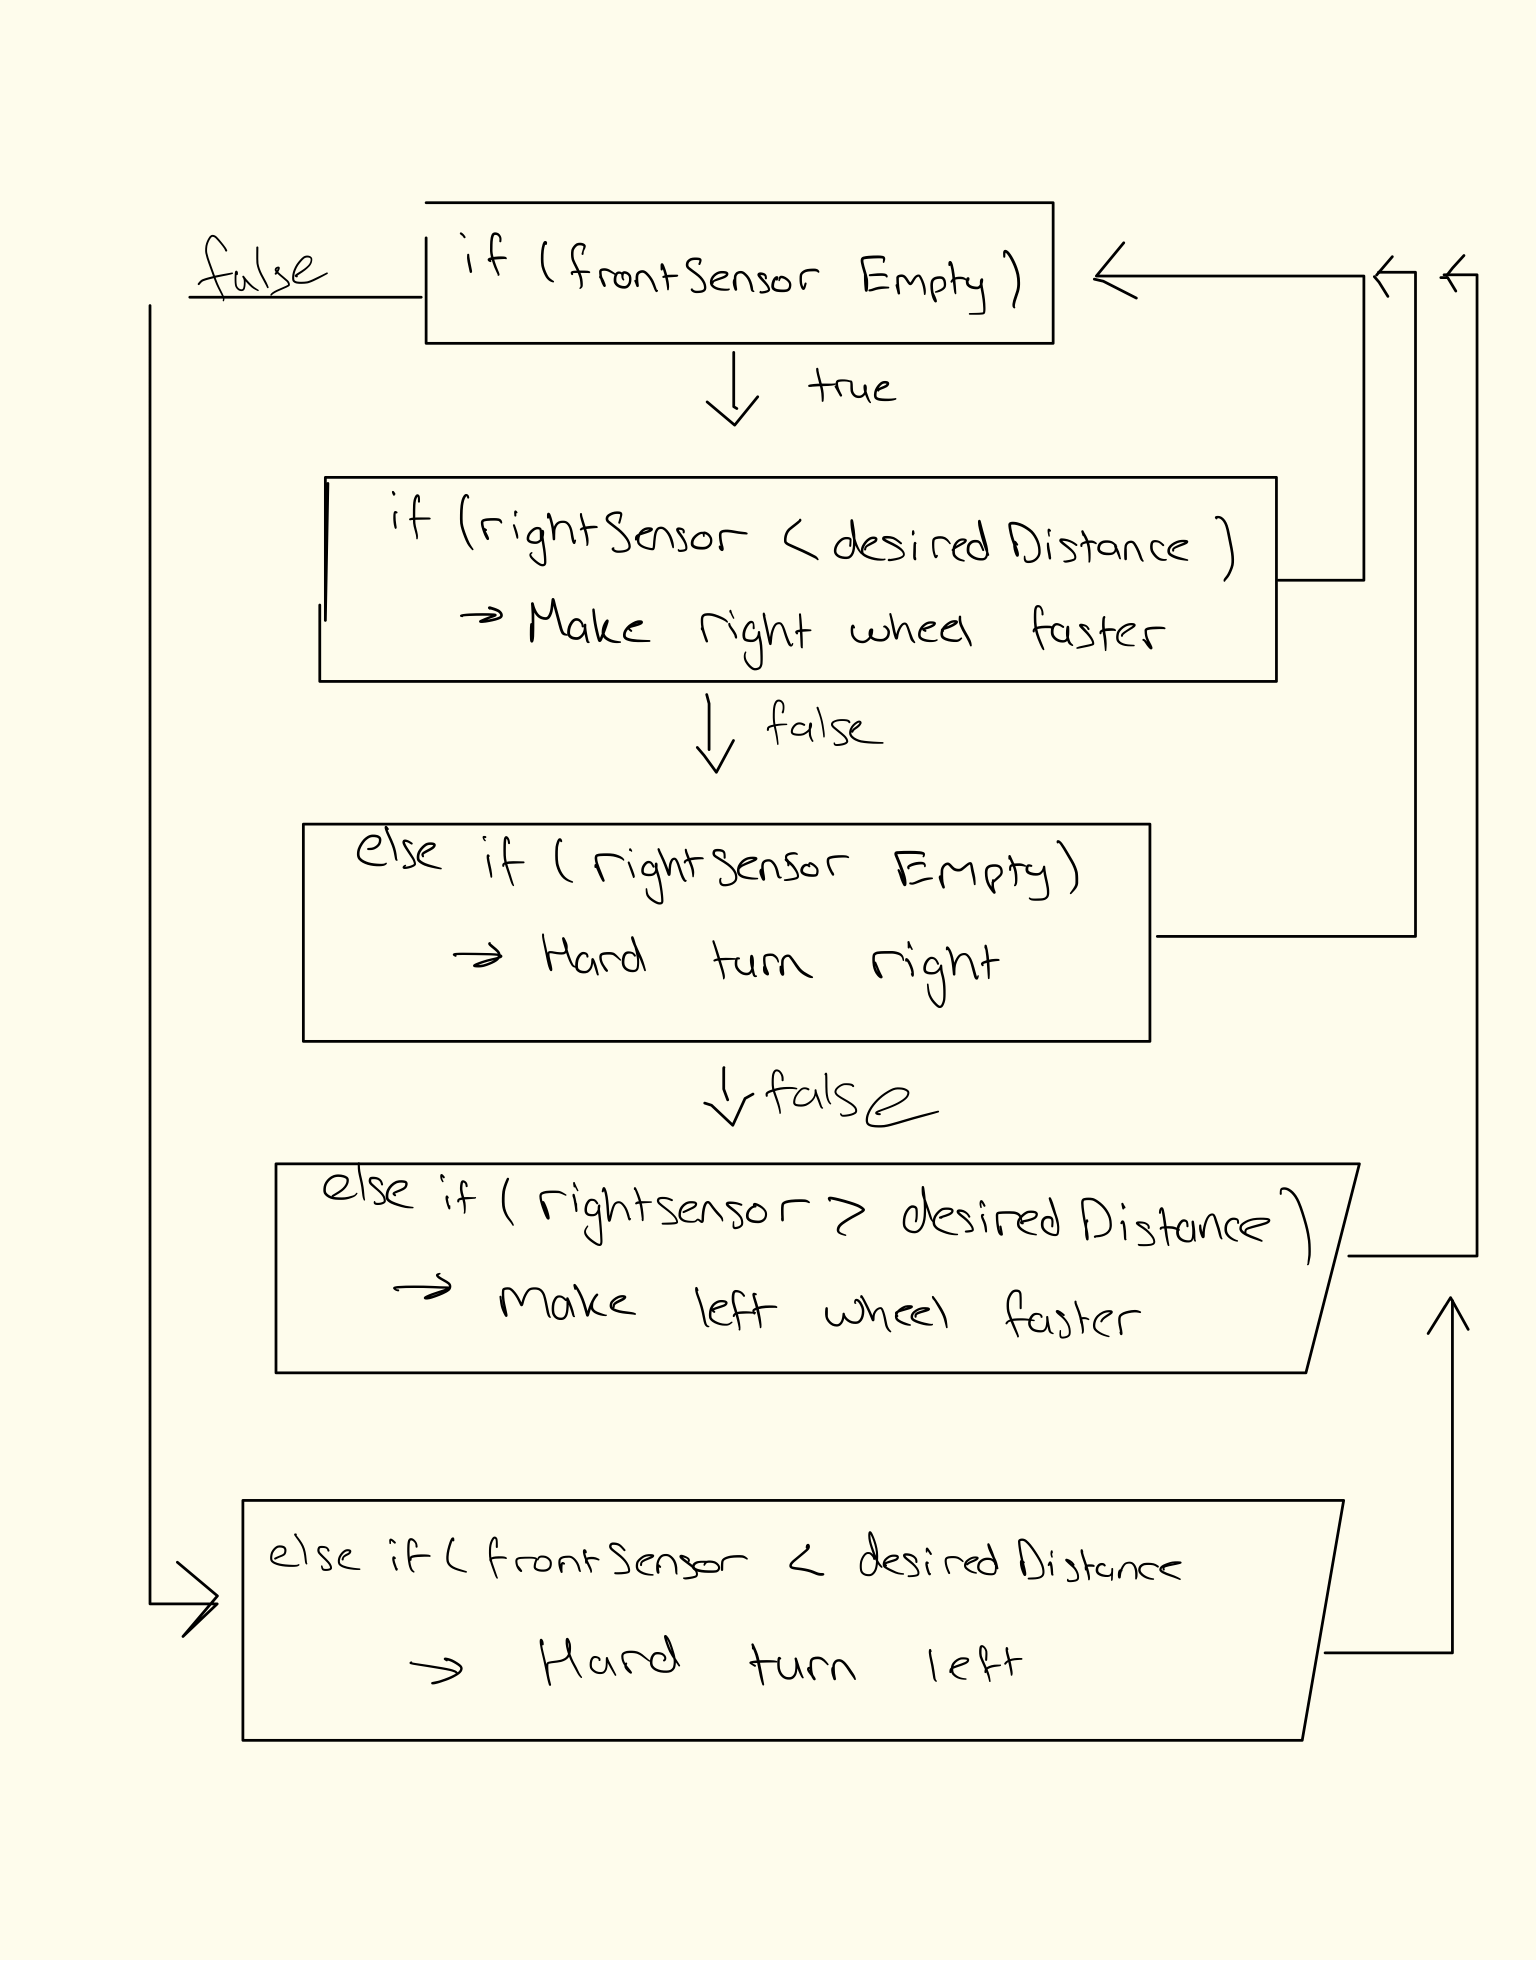 false
if (frontSensor Empty)
true
if (rightSensor < desired Distance)
→ Make right wheel faster
false
else if (rightSensor Empty)
→ Hard turn right
false
else if (rightsensor > desired Distance)
→ Make left wheel faster
else if (frontSensor < desired Distance
→ Hard turn left